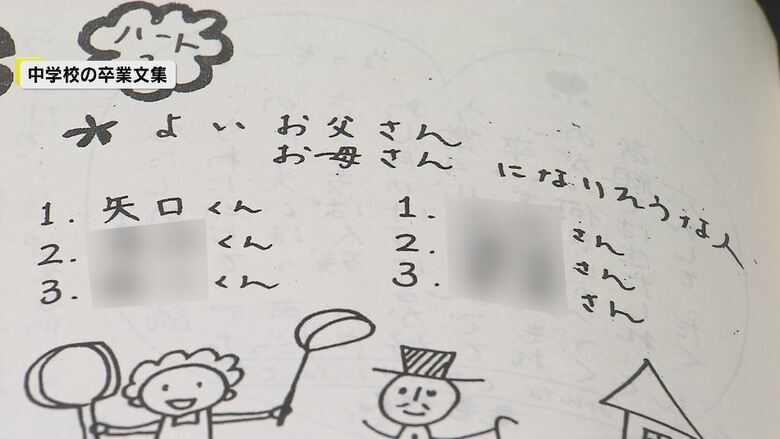 ハート
中学校の卒業文集
* よいお父さん
お母さん
になりそうな人
1. 矢口くん
2. くん
3. くん
1. さん
2. さん
3. さん